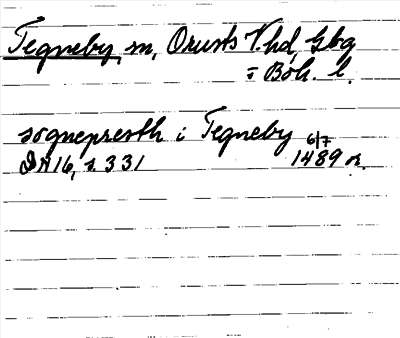 Tegneby sn, Orusts V. hd, Gbg
o Boh. l.
sognepresth i Tegneby
DN 16, s. 331 6/7 1489 or.